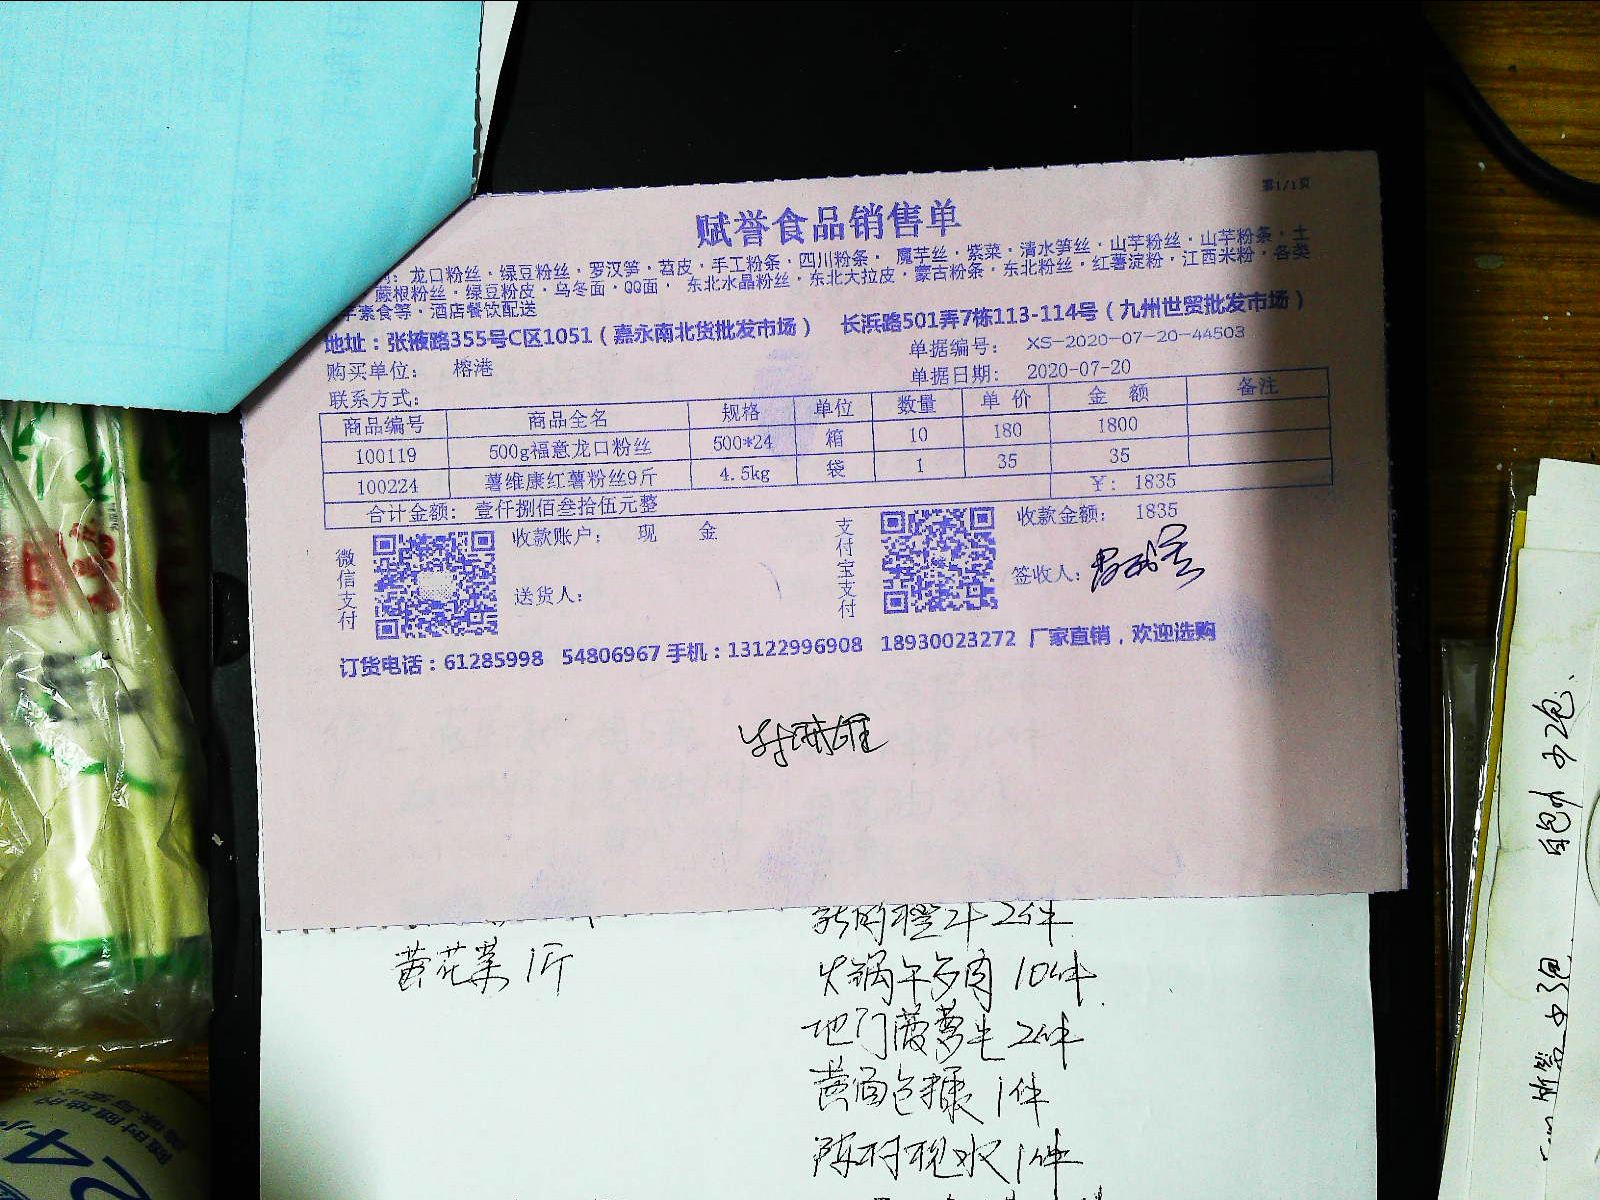 第1/1页
赋誉食品销售单
龙口粉丝·绿豆粉丝·罗汉笋·苕皮·手工粉条·四川粉条· 魔芋丝·紫菜·清水笋丝·山芋粉丝·山芋粉条·土
藤根粉丝·绿豆粉皮·乌冬面·QQ面· 东北水晶粉丝·东北大拉皮·蒙古粉条·东北粉丝·红薯淀粉·江西米粉·各类
素食等·酒店餐饮配送
地址：张掖路355号C区1051（嘉永南北货批发市场） 长浜路501弄7栋113-114号（九州世贸批发市场）
购买单位： 榕港 单据编号： XS-2020-07-20-44503
联系方式： 单据日期： 2020-07-20
商品编号 商品全名 规格 单位 数量 单价 金额 备注
100119 500g福意龙口粉丝 500*24 箱 10 180 1800
100224 薯维康红薯粉丝9斤 4.5kg 袋 1 35 35
合计金额： 壹仟捌佰叁拾伍元整 ￥： 1835
微信支付 收款账户： 现 金 支付宝支付 收款金额： 1835
送货人： 签收人：
订货电话：61285998 54806967 手机：13122996908 18930023272 厂家直销，欢迎选购
黄花菜 1斤
2件
10件
2件
黄面包糠 1件
陈村枧水 1件
24